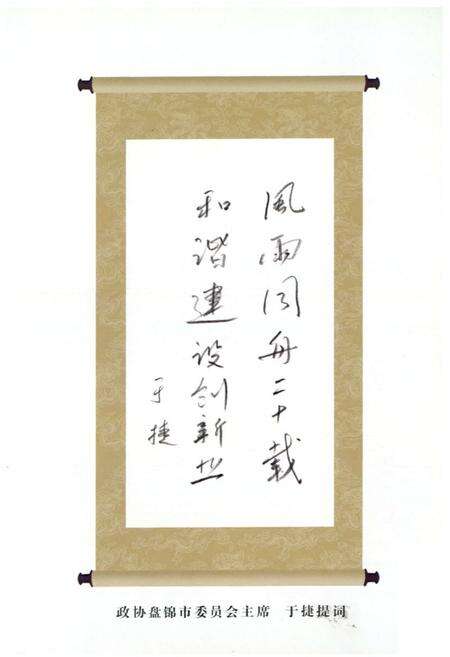 風雨同舟二十载
和谐建设创新业
于捷
政协盘锦市委员会主席 于捷提词